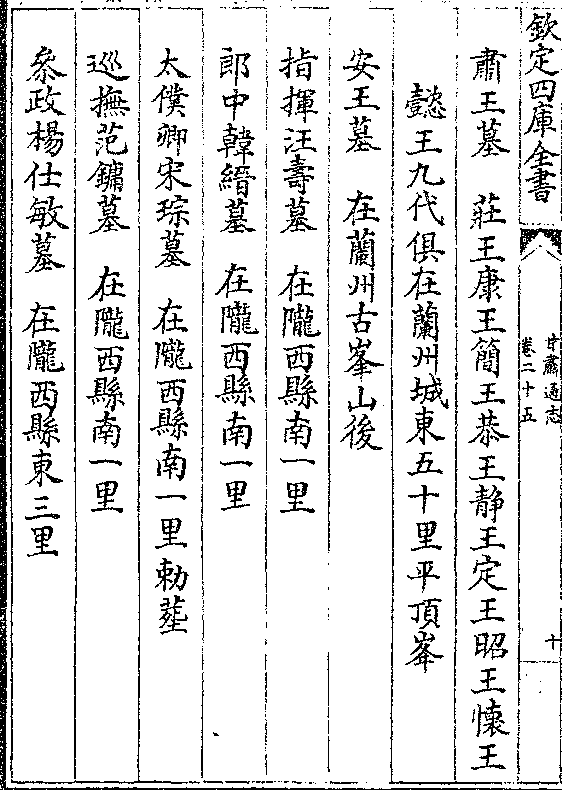 欽定四庫全書
甘肅通志
卷二十五
十
肅王墓　莊王康王簡王恭王靜王定王昭王懷王
懿王九代俱在蘭州城東五十里平頂峯
安王墓　在蘭州古峯山後
指揮汪壽墓　在隴西縣南一里
郎中韓縉墓　在隴西縣南一里
太僕卿宋琮墓　在隴西縣南一里勅塟
巡撫范鏞墓　在隴西縣南一里
叅政楊仕敏墓　在隴西縣東三里